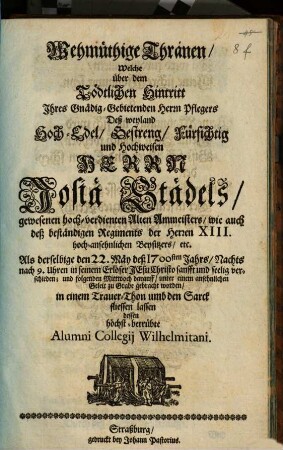 8 f
Wehmüthige Thränen/
Welche
über dem
Tödtlichen Hintritt
Ihres Gnädig-Gebietenden Herrn Pflegers
Deß weyland
Hoch-Edel/ Gestreng/ Fürsichtig
und Hochweisen
HERRN
Josiä Städels/
gewesenen hoch-verdienten Alten Ammeisters/ wie auch
deß beständigen Regiments der Herren XIII.
hoch-ansehnlichen Beysitzers/ etc.
Als derselbige den 22. Mäy deß 1700sten Jahrs/ Nachts
nach 9. Uhren in seinem Erlöser JEsu Christo sanfft und seelig ver-
schieden; und folgenden Mittwoch darauff/ unter einem ansehnlichen
Geleit zu Grabe gebracht worden/
in einem Trauer-Thon umb den Sarck
fliessen lassen
dessen
höchst-betrübte
Alumni Collegij Wilhelmitani.
Straßburg/
gedruckt bey Johann Pastorius.